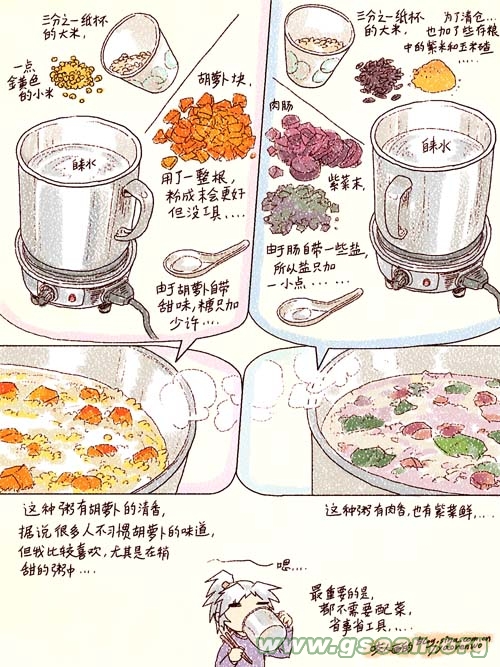 三分之一纸杯
的大米,
一点
金黄色
的小米
胡萝卜块,
自来水
用了一整根,
粉成末会更好
但没工具....
由于胡萝卜自带
甜味,糖只加
少许....
三分之一纸杯
的大米,
为了清仓...
也加了些存粮
中的紫米和玉米碴
肉肠
紫菜末,
自来水
由于肠自带一些盐,
所以盐只加
一小点......
这种粥有胡萝卜的清香,
据说很多人不习惯胡萝卜的味道,
但我比较喜欢,尤其是在稍
甜的粥中....
这种粥有肉香,也有紫菜鲜,...
嗯....
最重要的是,
都不需要配菜,
省事省工具....